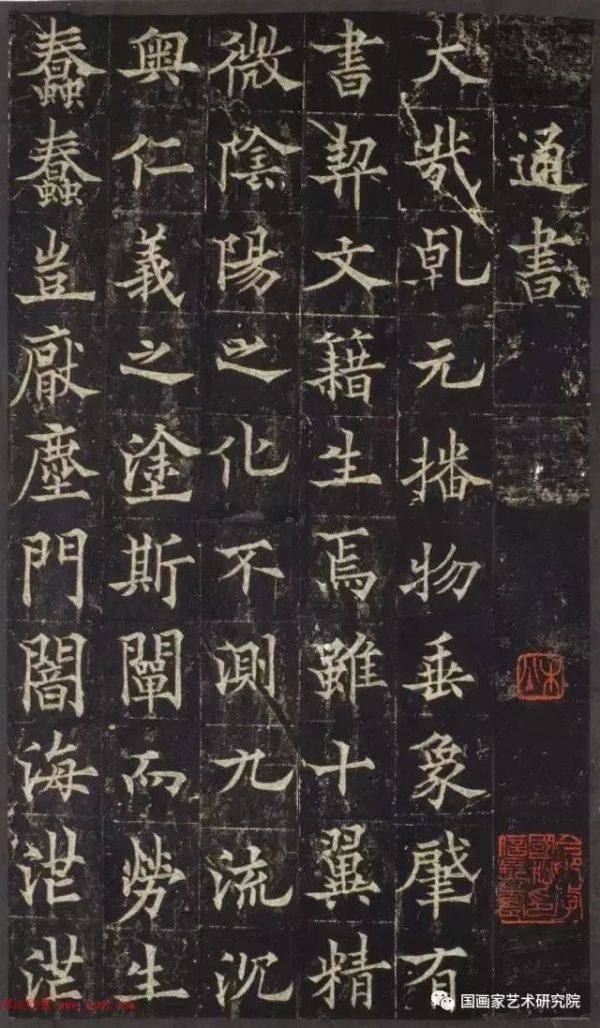 通書
大哉乹元播物垂象肇有
書契文籍生焉雖十翼精
微陰陽之化不測九流沉
奧仁義之塗斯闡而勞生
蠢蠢豈厭塵門闇海茫茫
国画家艺术研究院